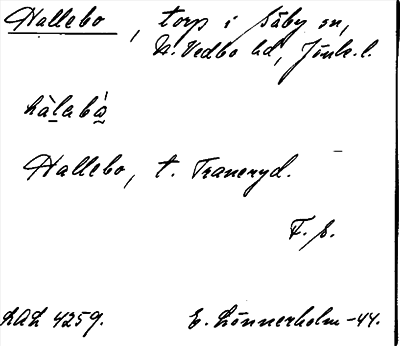 Hallebo, torp i Säby sn,
N. Vedbo hd, Jönk. l.
hàlabà
Hallebo, t. Traneryd.
F. b.
LAL 4259.
E. Lönnerholm -44.